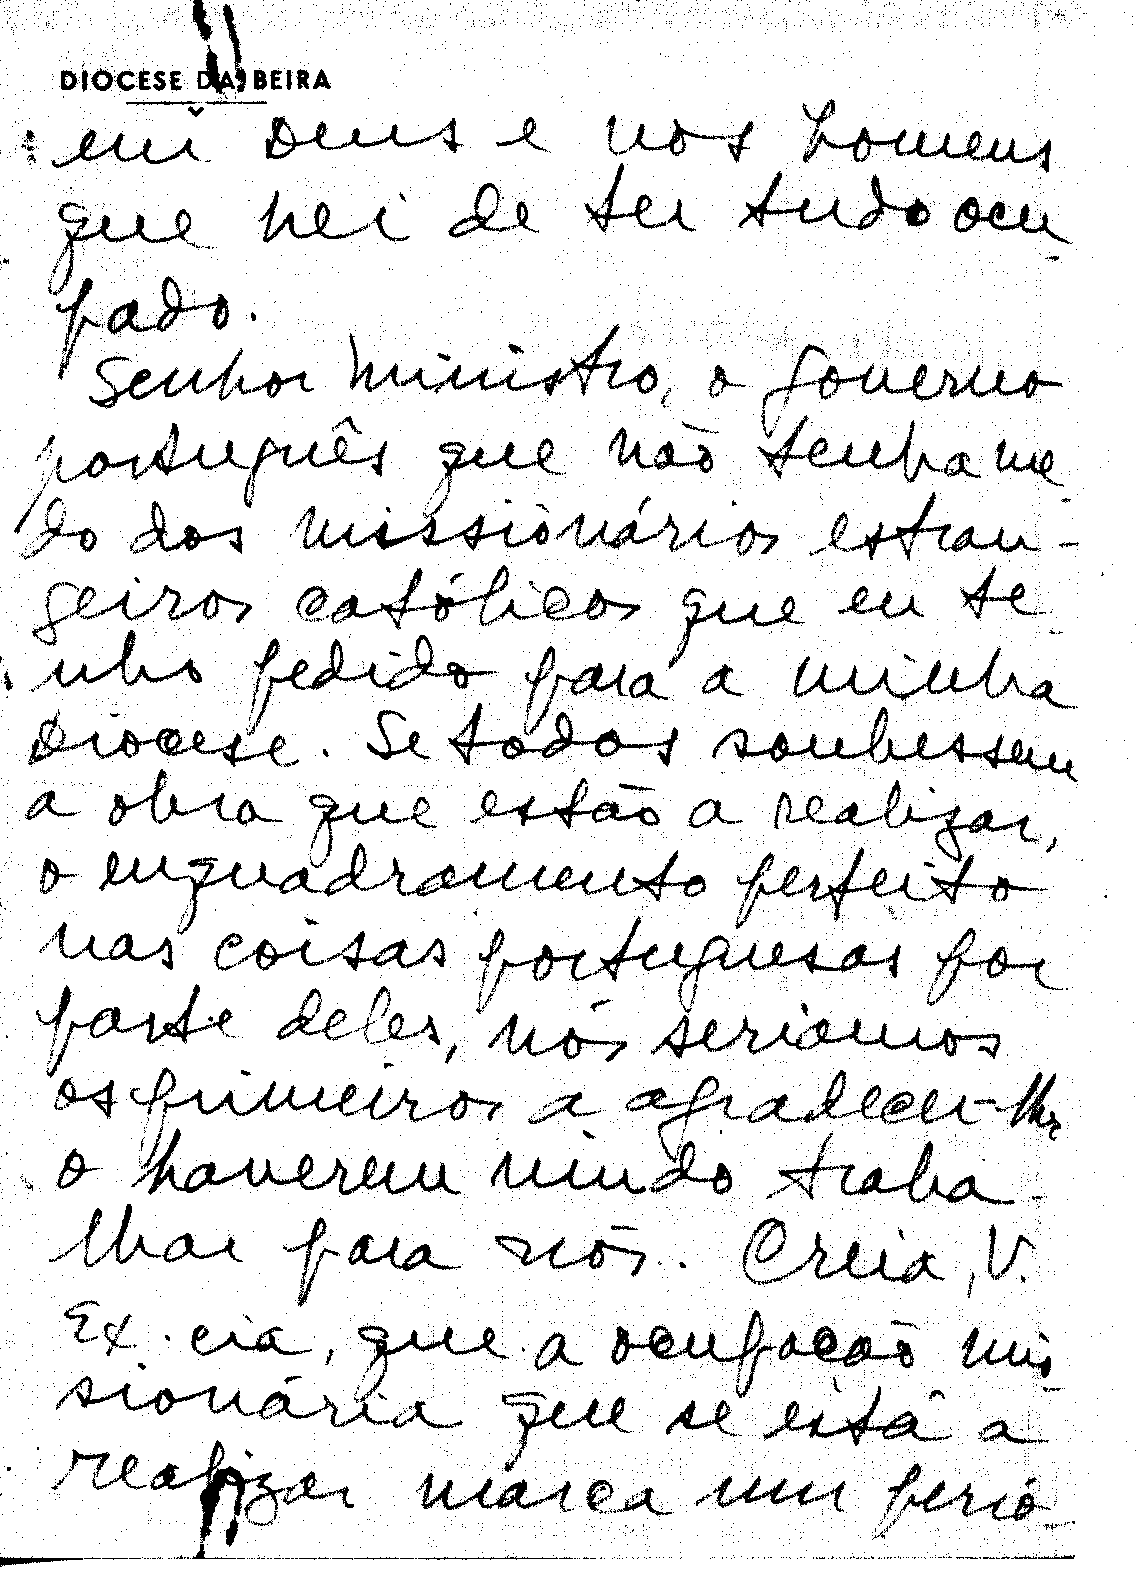 DIOCESE DA BEIRA
em Deus e nos homens
que hei de ter tudo ocu-
pado.
Senhor Ministro, o Governo
português que não tenha me-
do dos missionários estran-
geiros católicos que eu te-
nho pedido para a minha
Diocese. Se todos soubessem
a obra que estão a realizar,
o enquadramento perfeito
nas coisas portuguesas por
parte deles, nós seriamos
os primeiros a agradecer-lhes
o haverem vindo traba-
lhar para nós. Creia, V.
Ex.cia, que a ocupação mis-
sionária que se está a
realizar marca um perío-